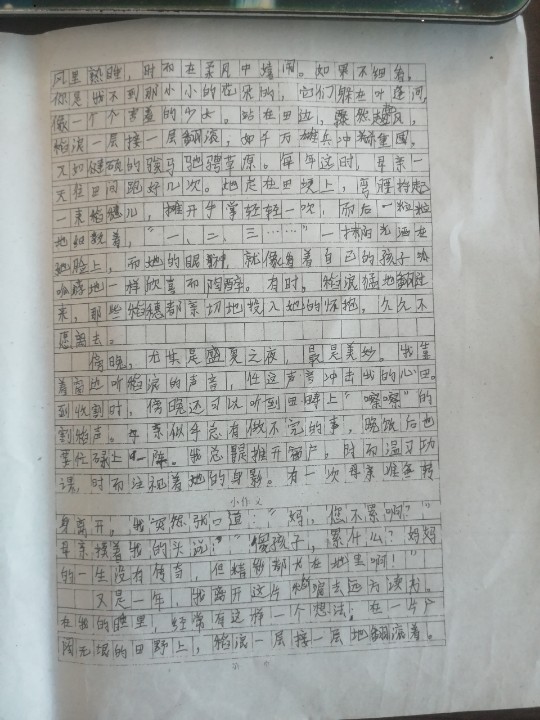 风里熟睡，时而在柔风中嬉闹。如果不细看，
你是找不到那小小的花朵的，它们躲在叶莲间，
像一个个害羞的少女。站在田边，蓦然起风，
稻浪一层接一层翻滚，如千万雄兵冲解重围，
又如健硕的骏马驰骋草原。每年这时，母亲一
天往田间跑好几次。她走在田埂上，弯腰拾起
一束稻穗儿，摊开手掌轻轻一吹，而后一粒粒
地细数着，“一、二、三……”一抹阳光洒在
她脸上，而她的眼眸，就像看着自己的孩子
地一样欣喜和陶醉。有时，稻浪猛地翻过
来，那些稻穗都亲切地投入她的怀抱。久久不
愿离去。
傍晚，尤其是盛夏之夜，最是美妙。我坐
着窗边听稻浪的声音，任这声音冲击我的心田。
到收割时，傍晚还可以听到田野上“嚓嚓”的
割稻声。母亲似乎总有做不完的事，晚饭后也
要忙碌上一阵。我总是推开窗户，时而温习功
课，时而注视着她的身影。有一次母亲准备转
小作文
身离开。我突然张口道：“妈，您不累啊？”
母亲摸着我的头说：“傻孩子，累什么？妈妈
的一生没有传奇，但精妙都大在地里啊！”
又是一年，我离开这片稻田去远方读书。
在我的脑里，经常有这样一个想法：在一片广
阔无垠的田野上，稻浪一层接一层地翻滚着。